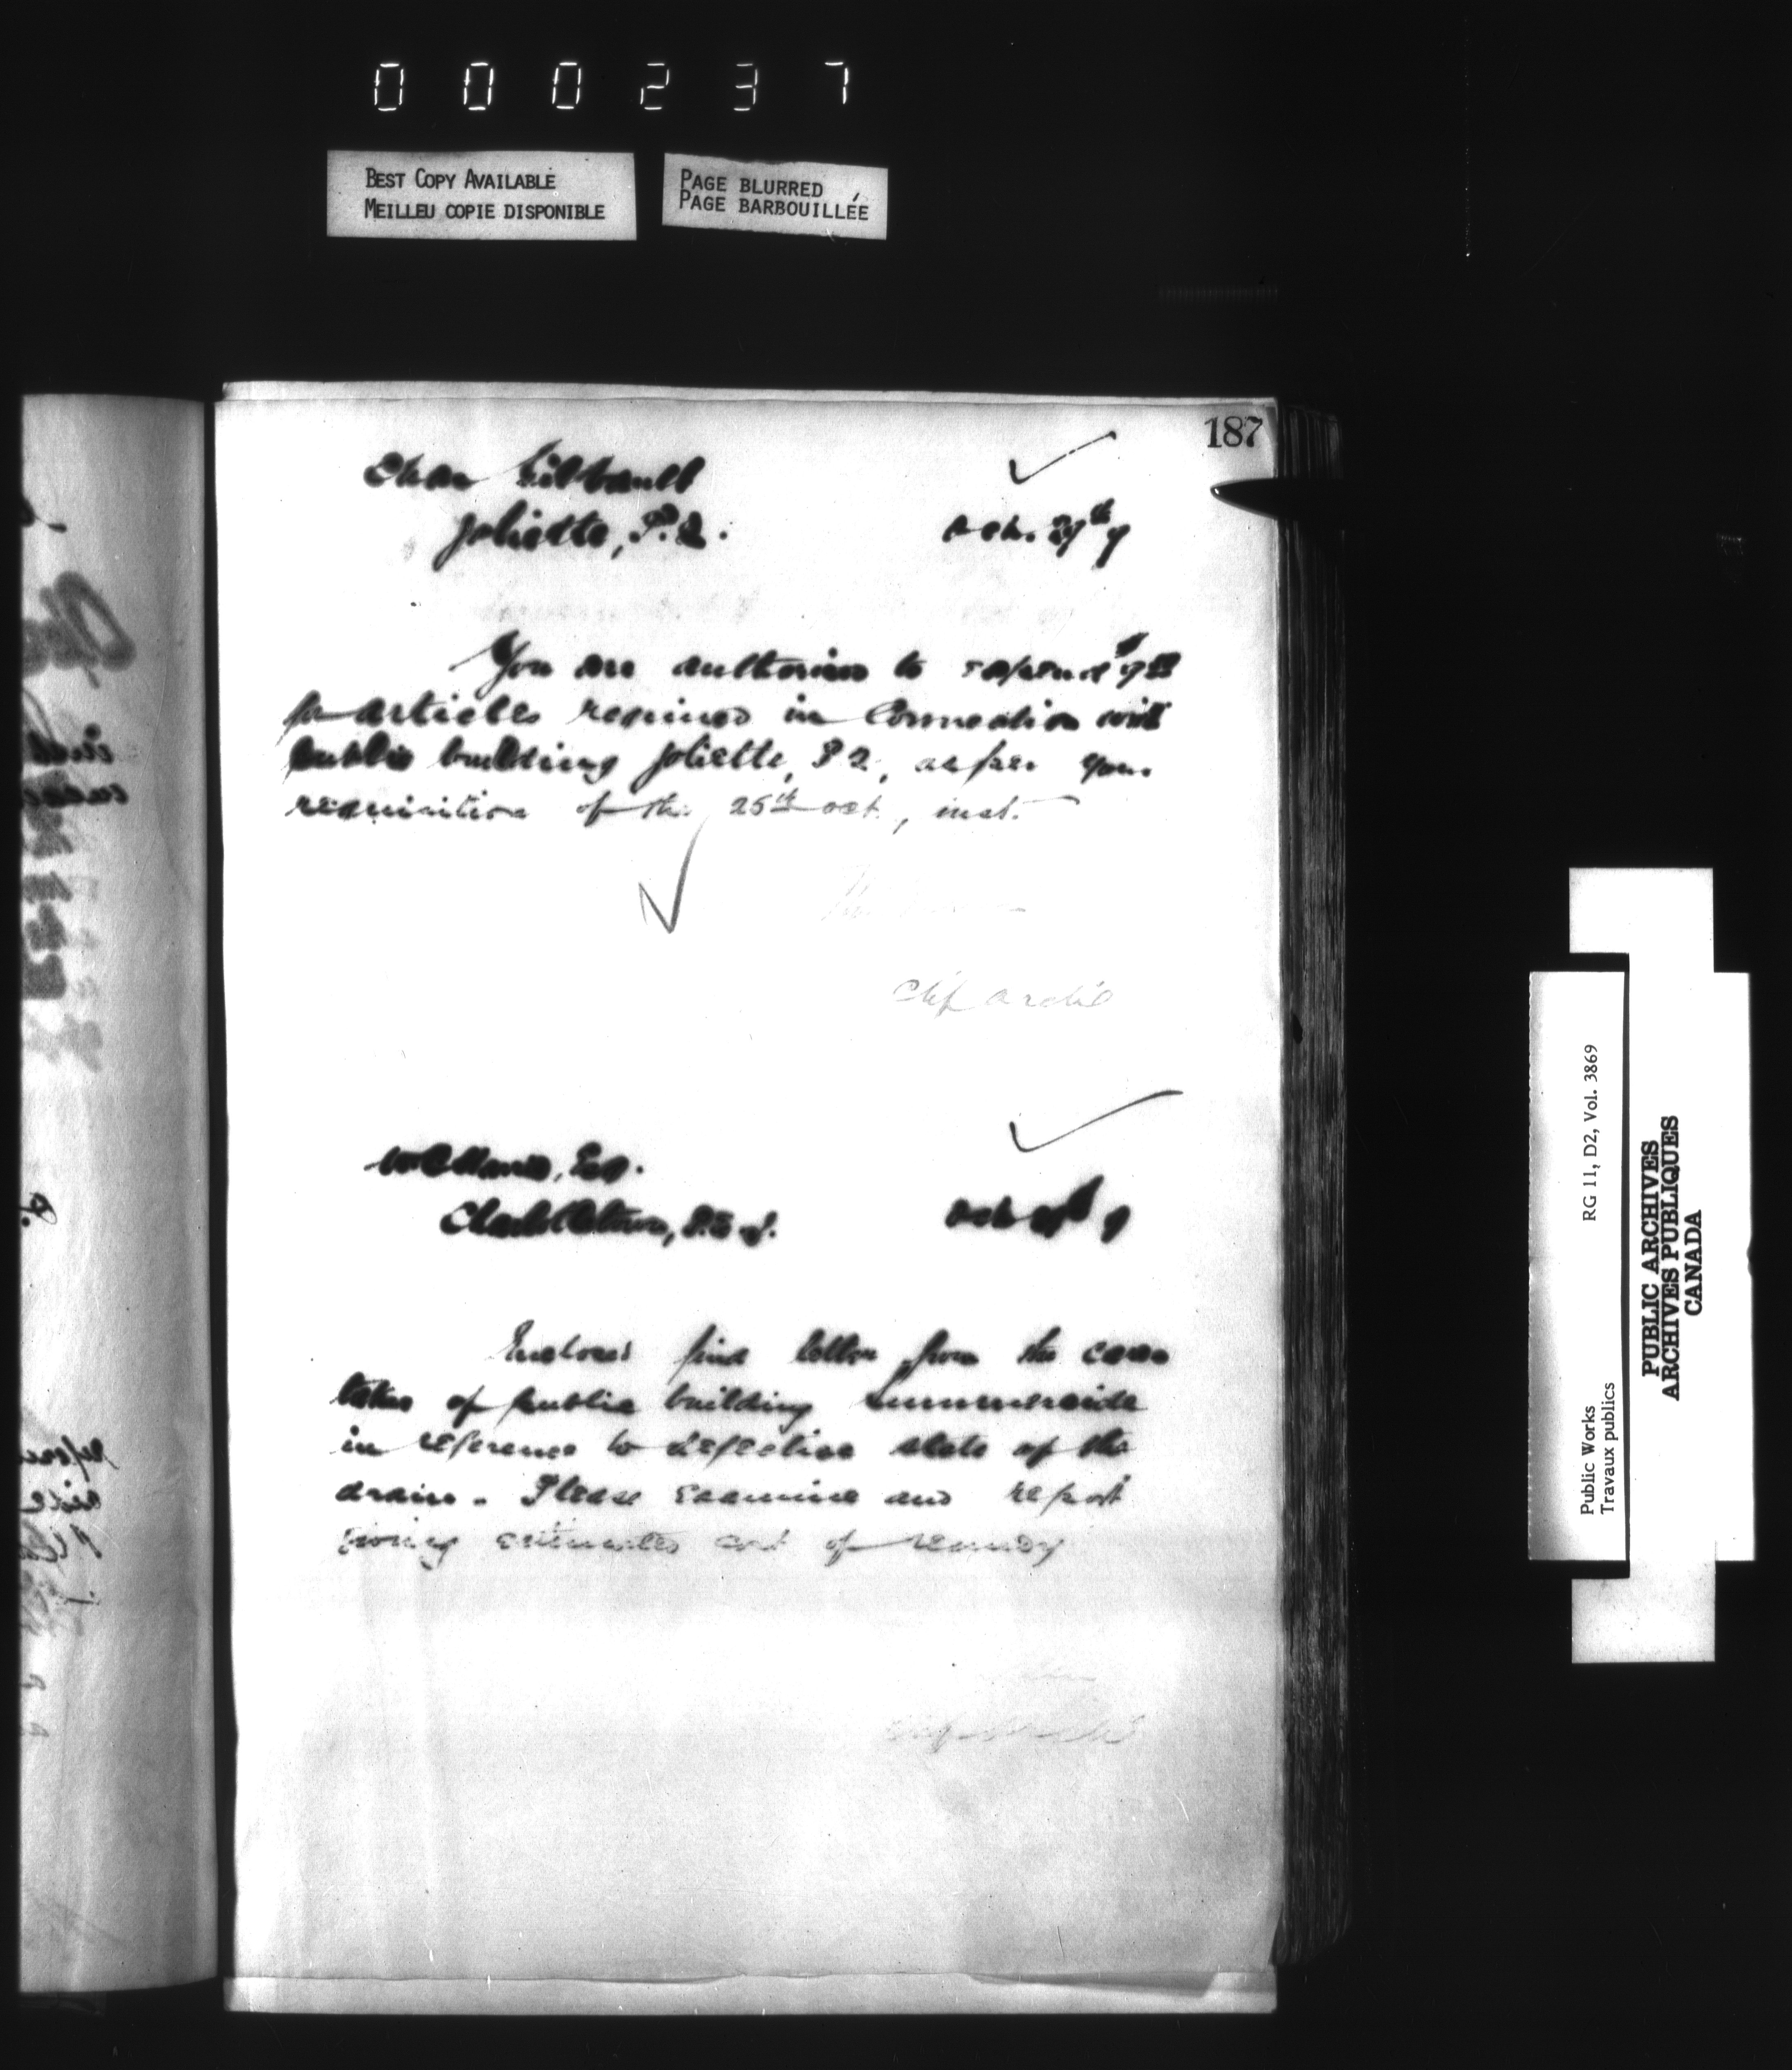 000237
BEST COPY AVAILABLE
MEILLEU COPIE DISPONIBLE
PAGE BLURRED
PAGE BARBOUILLÉE
187
Chas Gilbault
Joliette, P.Q.
Oct. 27th
You are authorised to expend
for articles required in connection with
public building Joliette, P Q, as per your
requisition of the 25th oct., inst.
Chf Archt
Esq.
Charlottetown, P.E.I.
Oct
Enclosed find letter from the care
taker of public building Summerside
in reference to defective state of the
drain. Please examine and report
giving estimated cost of remedy
RG 11, D2, Vol. 3869
Public Works
Travaux publics
PUBLIC ARCHIVES
ARCHIVES PUBLIQUES
CANADA